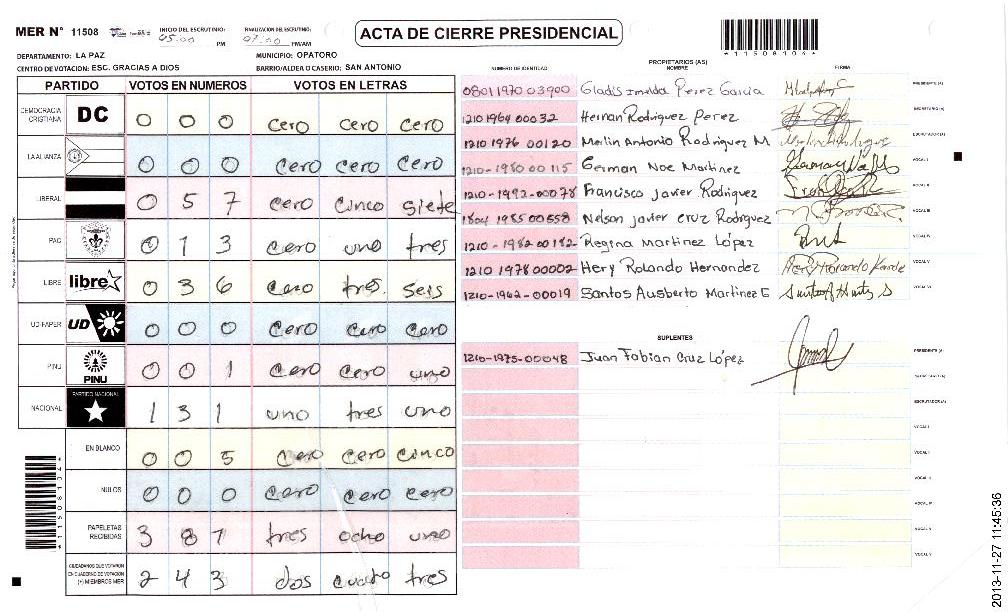 MER N° 11508
INICIO DEL ESCRUTINIO: 05:00 PM
FINALIZACION DEL ESCRUTINIO: 07:00 PM/AM
ACTA DE CIERRE PRESIDENCIAL
*11508104*
DEPARTAMENTO: LA PAZ
MUNICIPIO: OPATORO
CENTRO DE VOTACION: ESC. GRACIAS A DIOS
BARRIO/ALDEA O CASERIO: SAN ANTONIO
PARTIDO VOTOS EN NUMEROS VOTOS EN LETRAS
DEMOCRACIA CRISTIANA DC 0 0 0 cero cero cero
LA ALIANZA 0 0 0 cero cero cero
LIBERAL 0 5 7 cero cinco siete
PAC 0 1 3 cero uno tres
LIBRE libre 0 3 6 cero tres seis
UD-FAPER UD 0 0 0 cero cero cero
PINU PINU 0 0 1 cero cero uno
NACIONAL PARTIDO NACIONAL 1 3 1 uno tres uno
EN BLANCO 0 0 5 cero cero cinco
NULOS 0 0 0 cero cero cero
PAPELETAS RECIBIDAS 3 8 1 tres ocho uno
CIUDADANOS QUE VOTARON EN CUADERNO DE VOTACION (+) MIEMBROS MER 2 4 3 dos cuatro tres
PROPIETARIOS (AS)
NUMERO DE IDENTIDAD NOMBRE FIRMA
0801 1970 03900 Gladis Imelda Perez Garcia PRESIDENTE (A)
1210 1964 00032 Hernan Rodriguez Perez SECRETARIO (A)
1210 1976 00120 Merlin Antonio Rodriguez M ESCRUTADOR (A)
1210-1980 00115 German Noe Martinez VOCAL I
1210-1992-00078 Francisco Javier Rodriguez VOCAL II
1804 1985 00558 Nelson Javier Cruz Rodriguez VOCAL III
1210-1982 00182 Regina Martinez López VOCAL IV
1210 1978 00002 Hery Rolando Hernandez VOCAL V
1210-1962-00019 Santos Ausberto Martinez G VOCAL VI
SUPLENTES
1210-1975-00048 Juan Fabian Cruz López PRESIDENTE (A)
SECRETARIO (A)
ESCRUTADOR (A)
VOCAL I
VOCAL II
VOCAL III
VOCAL IV
VOCAL V
VOCAL VI
*11508104*
2013-11-27 11:45:36